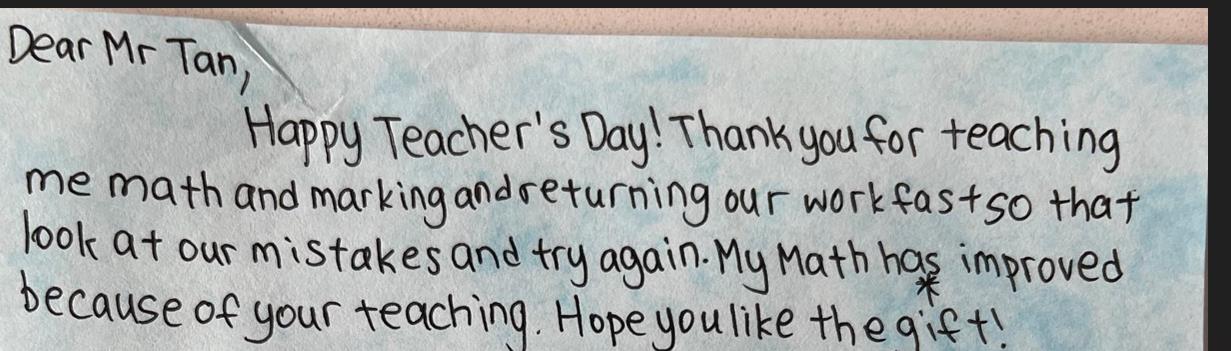 Dear Mr Tan,
Happy Teacher's Day! Thank you for teaching
me math and marking and returning our work fast so that
look at our mistakes and try again. My Math has improved
*
because of your teaching. Hope you like the gift!